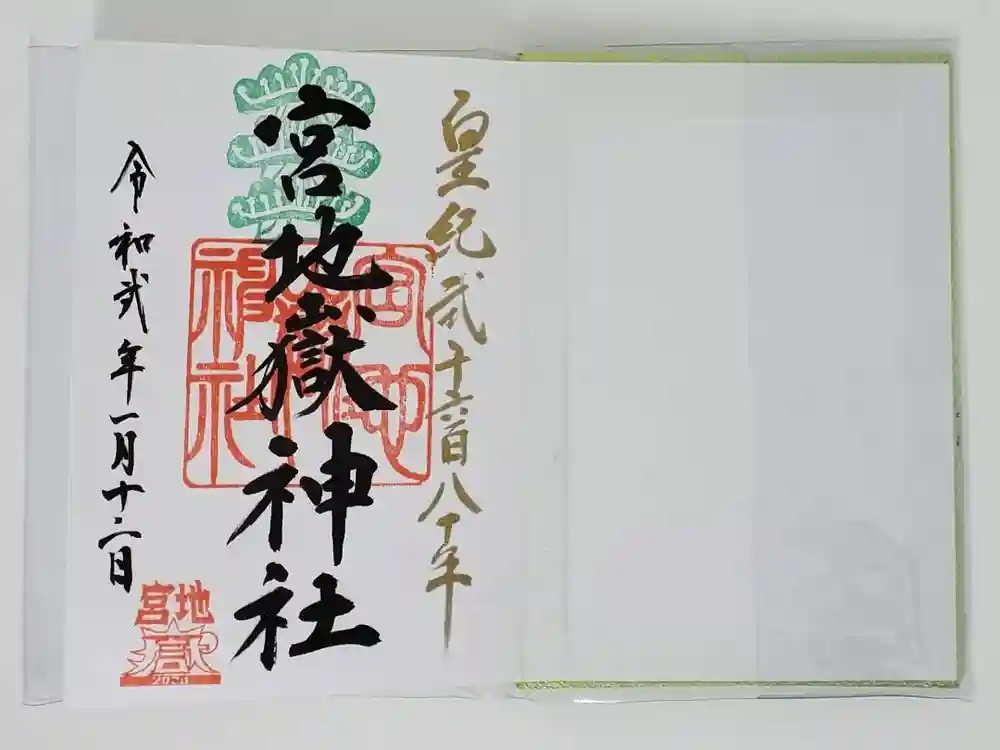 皇紀弐千六百八十年
宮地嶽神社
宮地嶽神社
令和弐年一月十二日
宮地
嶽
2020